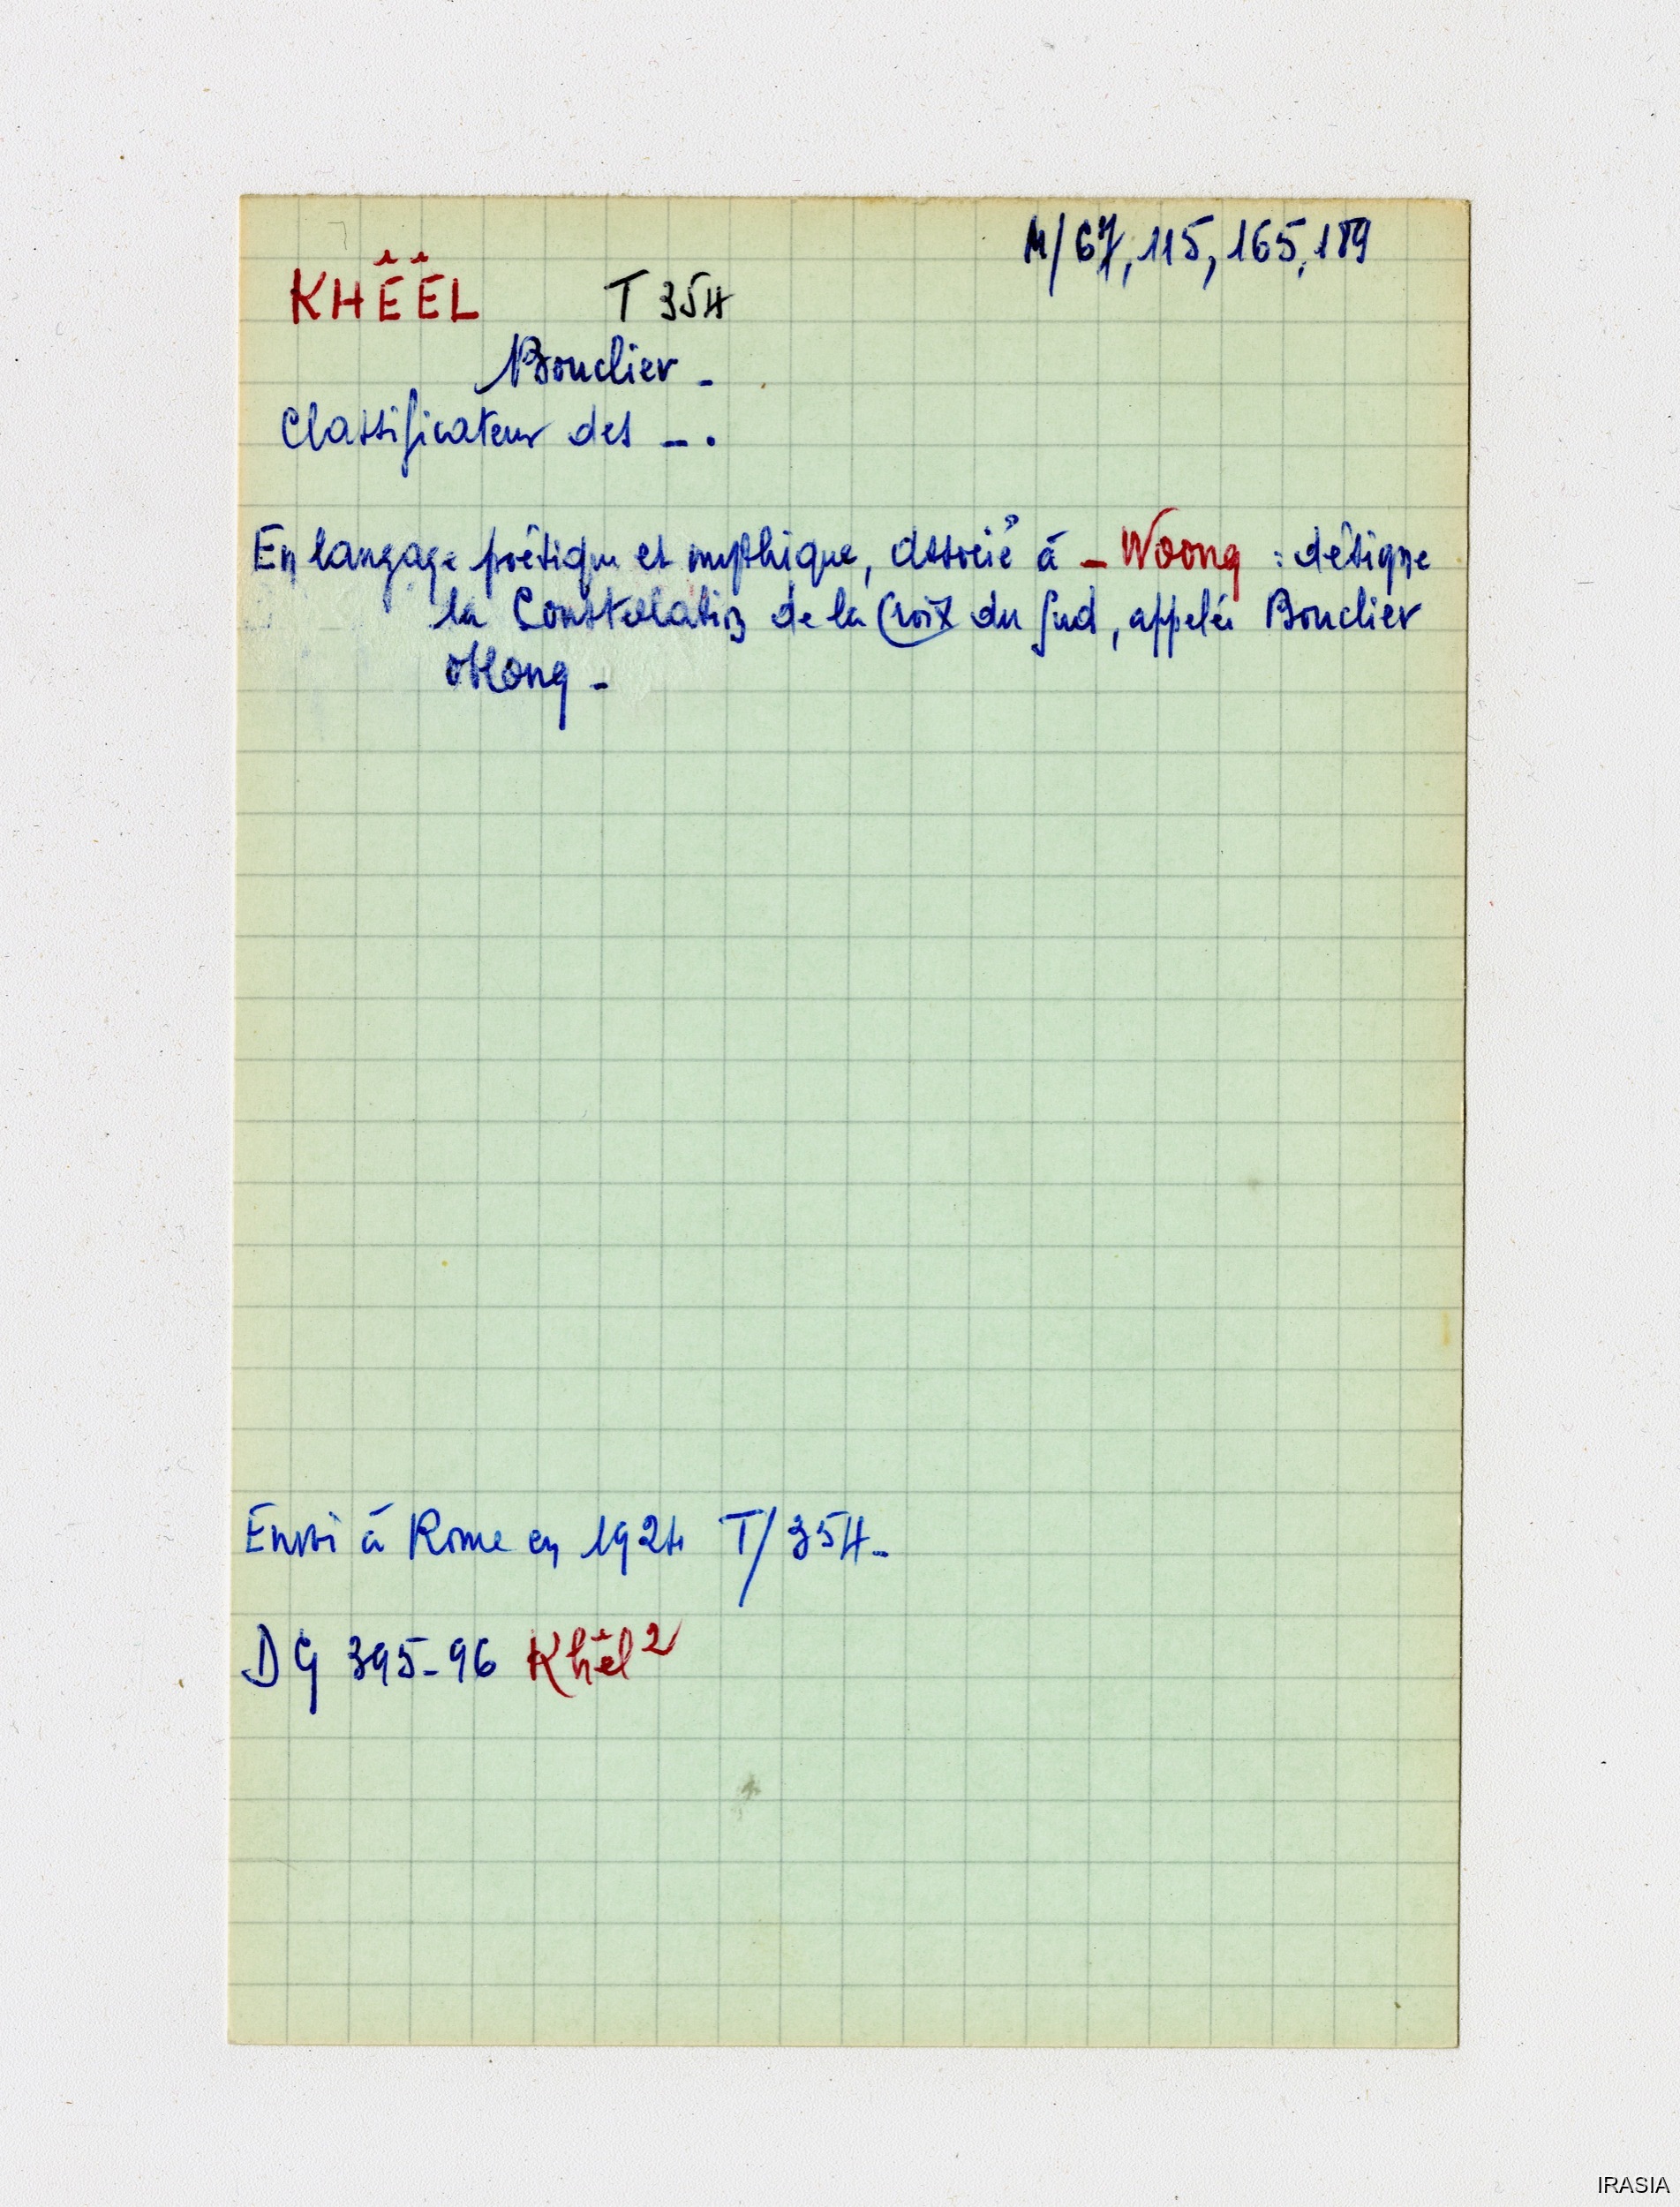 M/67, 115, 165, 189
KHÊÊL T 354
Bouclier _
Classificateur des _ .
En langage poétique et mythique, associé à _ Woong : désigne
la Constellation de la Croix du Sud, appelée Bouclier
oblong _
Envoi à Rome en 1924 T/354_
DG 395-96 Khêl²
IRASIA